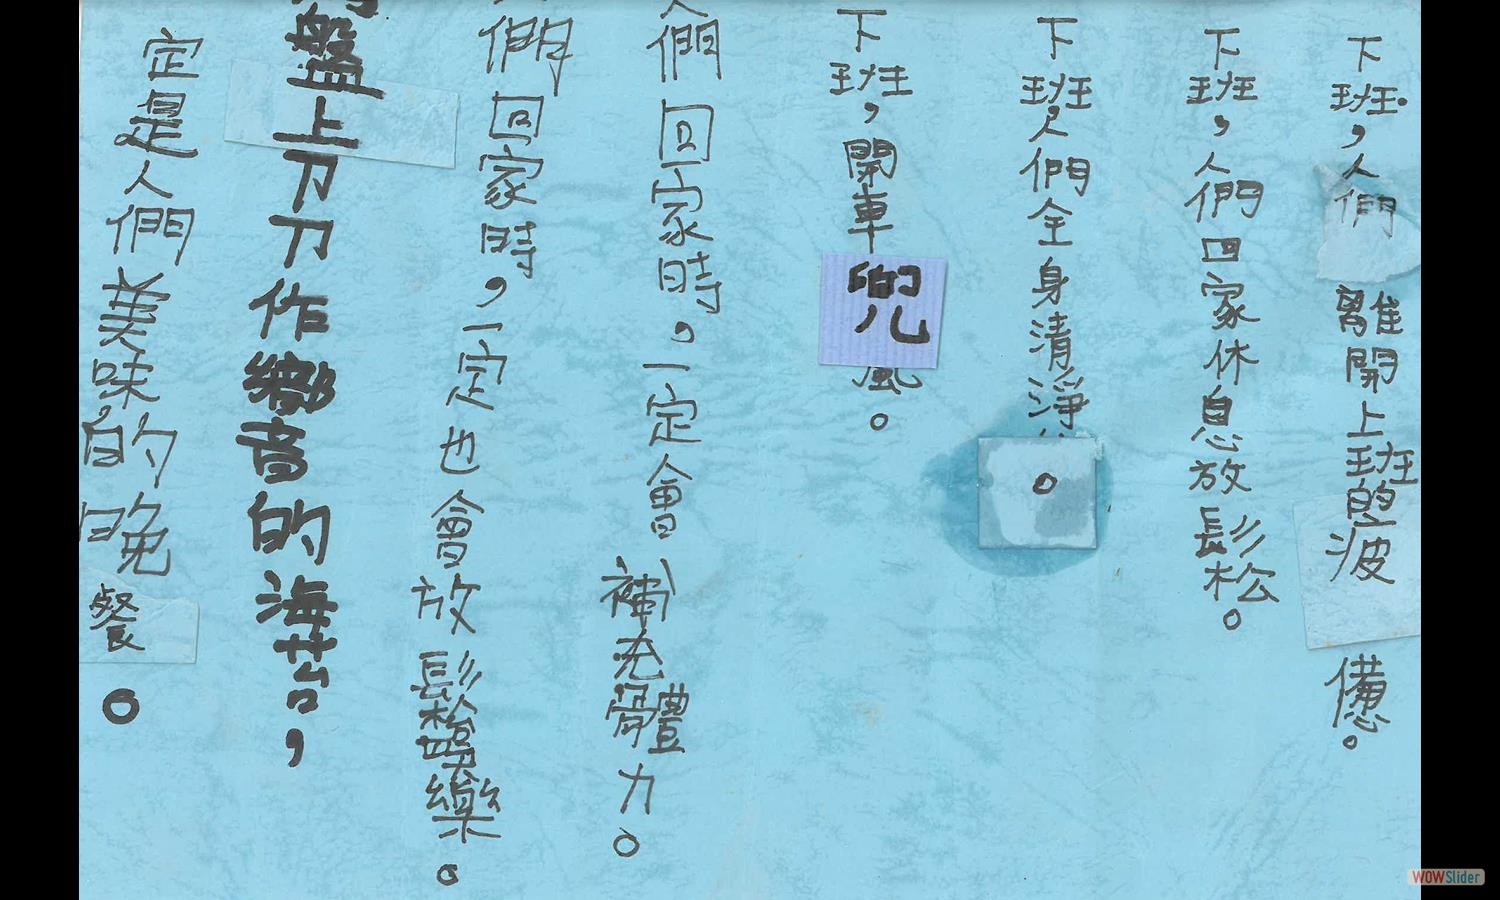 下班，人們離開上班的疲憊。
下班，人們回家休息放鬆。
下班，人們全身清淨。
下班，開車兜風。
們回家時，一定會補充體力。
們回家時，一定也會放鬆聽樂。
盤上刀刀作響的海苔，
定是人們美味的晚餐。
WOWSlider